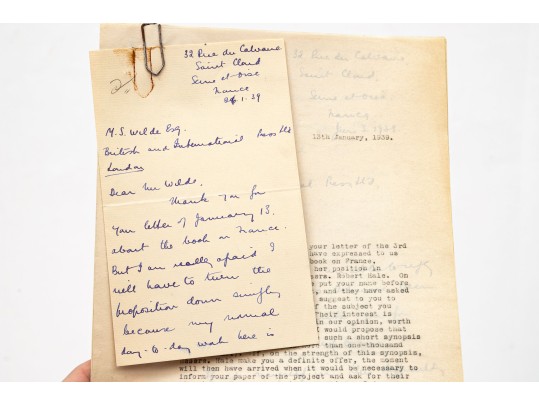 2
32 Rue du Calvaire
Saint Cloud
Seine et Oise
France
26.1.39
M.S. Wilde Esq.
British and International Press Ltd
London
Dear Mr Wilde,
Thank you for
your letter of January 13.
about the book on France.
But I am really afraid I
will have to turn the
proposition down simply
because my normal
day-to-day work here is
13th January, 1939.
your letter of the 3rd
have expressed to us
book on France,
her position in
Robert Hale. On
put your name before
, and they have asked
suggest to you to
of the subject you
Their interest is
in our opinion, worth
I would propose that
such a short synopsis
more than one-thousand
, on the strength of this synopsis,
Hale make you a definite offer, the moment
will then have arrived when it would be necessary to
inform your paper of the project and ask for their